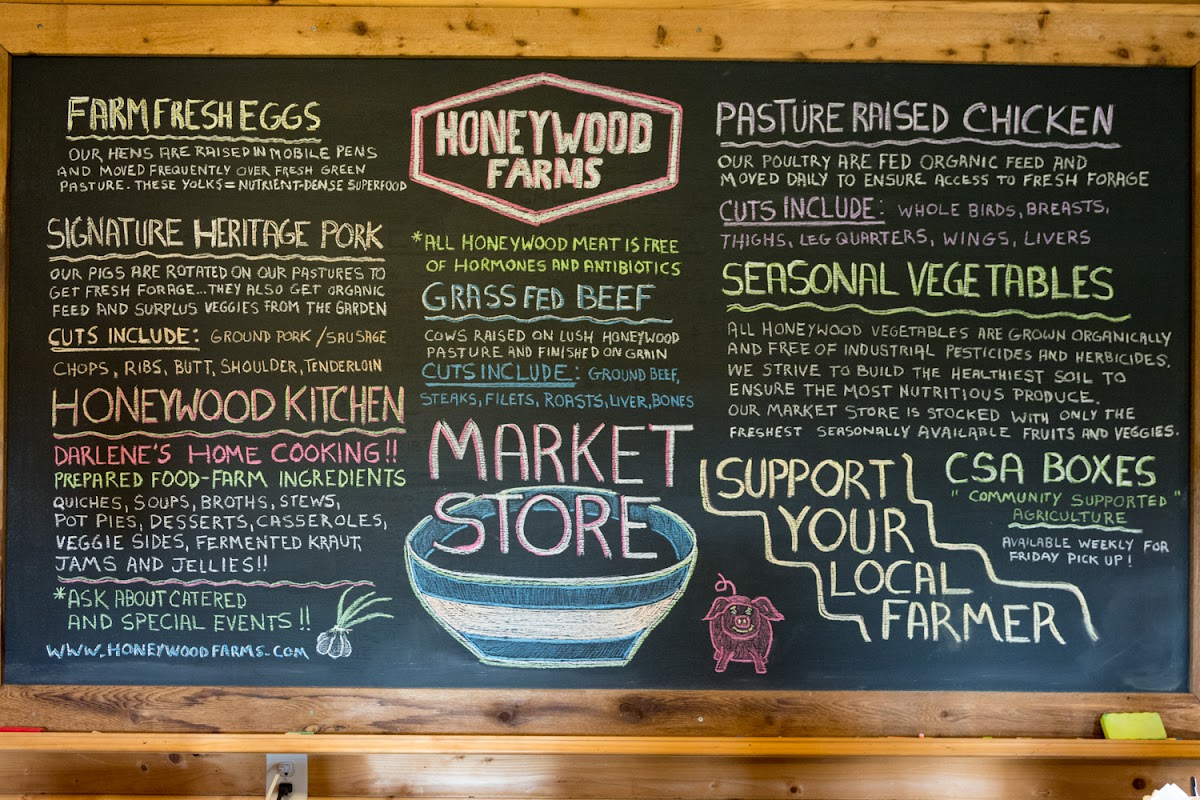 FARM FRESH EGGS
OUR HENS ARE RAISED IN MOBILE PENS
AND MOVED FREQUENTLY OVER FRESH GREEN
PASTURE. THESE YOLKS = NUTRIENT-DENSE SUPERFOOD
SIGNATURE HERITAGE PORK
OUR PIGS ARE ROTATED ON OUR PASTURES TO
GET FRESH FORAGE...THEY ALSO GET ORGANIC
FEED AND SURPLUS VEGGIES FROM THE GARDEN
CUTS INCLUDE: GROUND PORK/SAUSAGE
CHOPS, RIBS, BUTT, SHOULDER, TENDERLOIN
HONEYWOOD KITCHEN
DARLENE'S HOME COOKING!!
PREPARED FOOD-FARM INGREDIENTS
QUICHES, SOUPS, BROTHS, STEWS,
POT PIES, DESSERTS, CASSEROLES,
VEGGIE SIDES, FERMENTED KRAUT,
JAMS AND JELLIES!!
*ASK ABOUT CATERED
AND SPECIAL EVENTS!!
WWW.HONEYWOODFARMS.COM
HONEYWOOD
FARMS
*ALL HONEYWOOD MEAT IS FREE
OF HORMONES AND ANTIBIOTICS
GRASS FED BEEF
COWS RAISED ON LUSH HONEYWOOD
PASTURE AND FINISHED ON GRAIN
CUTS INCLUDE: GROUND BEEF,
STEAKS, FILETS, ROASTS, LIVER, BONES
MARKET
STORE
PASTURE RAISED CHICKEN
OUR POULTRY ARE FED ORGANIC FEED AND
MOVED DAILY TO ENSURE ACCESS TO FRESH FORAGE
CUTS INCLUDE: WHOLE BIRDS, BREASTS,
THIGHS, LEG QUARTERS, WINGS, LIVERS
SEASONAL VEGETABLES
ALL HONEYWOOD VEGETABLES ARE GROWN ORGANICALLY
AND FREE OF INDUSTRIAL PESTICIDES AND HERBICIDES.
WE STRIVE TO BUILD THE HEALTHIEST SOIL TO
ENSURE THE MOST NUTRITIOUS PRODUCE.
OUR MARKET STORE IS STOCKED WITH ONLY THE
FRESHEST SEASONALLY AVAILABLE FRUITS AND VEGGIES.
SUPPORT
YOUR
LOCAL
FARMER
CSA BOXES
"COMMUNITY SUPPORTED"
AGRICULTURE
AVAILABLE WEEKLY FOR
FRIDAY PICK UP!